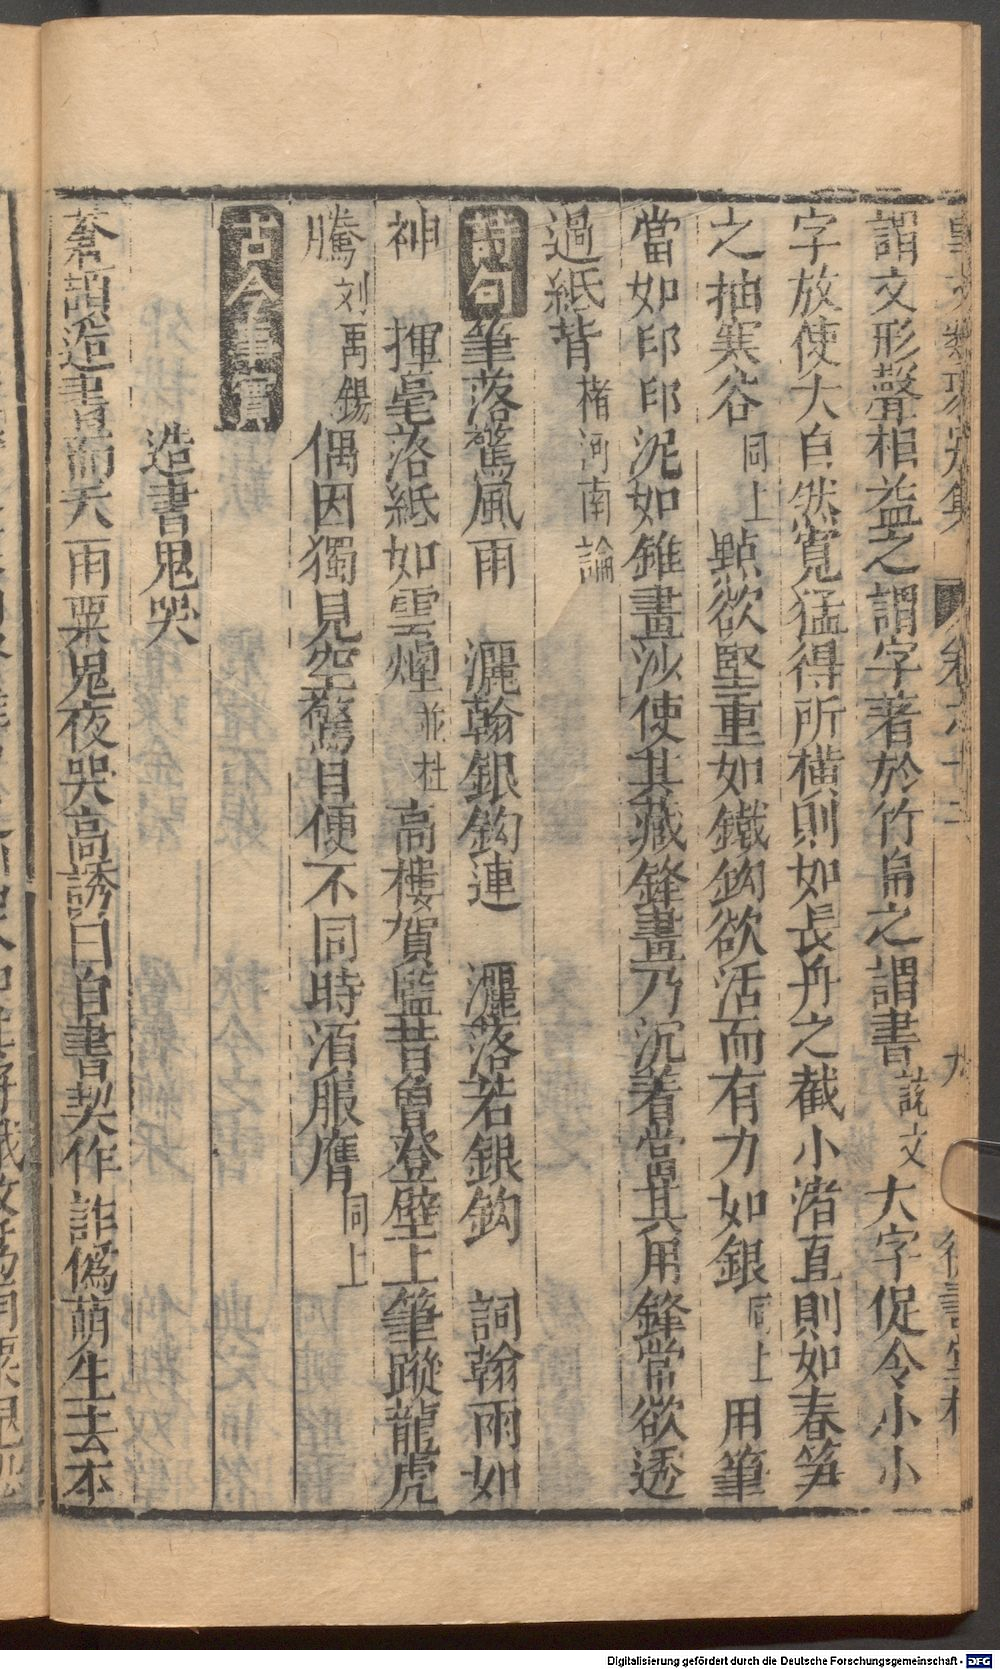 謂文形聲相益之謂字著於竹帛之謂書說文大字促令小小
字放使大自然寬猛得所橫則如長舟之截小渚直則如春笋
之抽寒谷同上點欲堅重如鐵鈎欲活而有力如銀同上用筆
當如印印泥如錐畫沙使其藏鋒畫乃沉著當其用鋒常欲透
過紙背褚河南論
詩句筆落驚風雨 灑翰銀鈎連 灑落若銀鈎 詞翰兩如
神 揮毫落紙如雲煙並杜高樓賀監昔曾登壁上筆蹤龍虎
騰刘禹錫偶因獨見空驚目便不同時須服膺同上
古今事實
造書鬼哭
蒼頡造書而天雨粟鬼夜哭高誘曰自書契作詐僞萌生去本
Digitalisierung gefördert durch die Deutsche Forschungsgemeinschaft - DFG